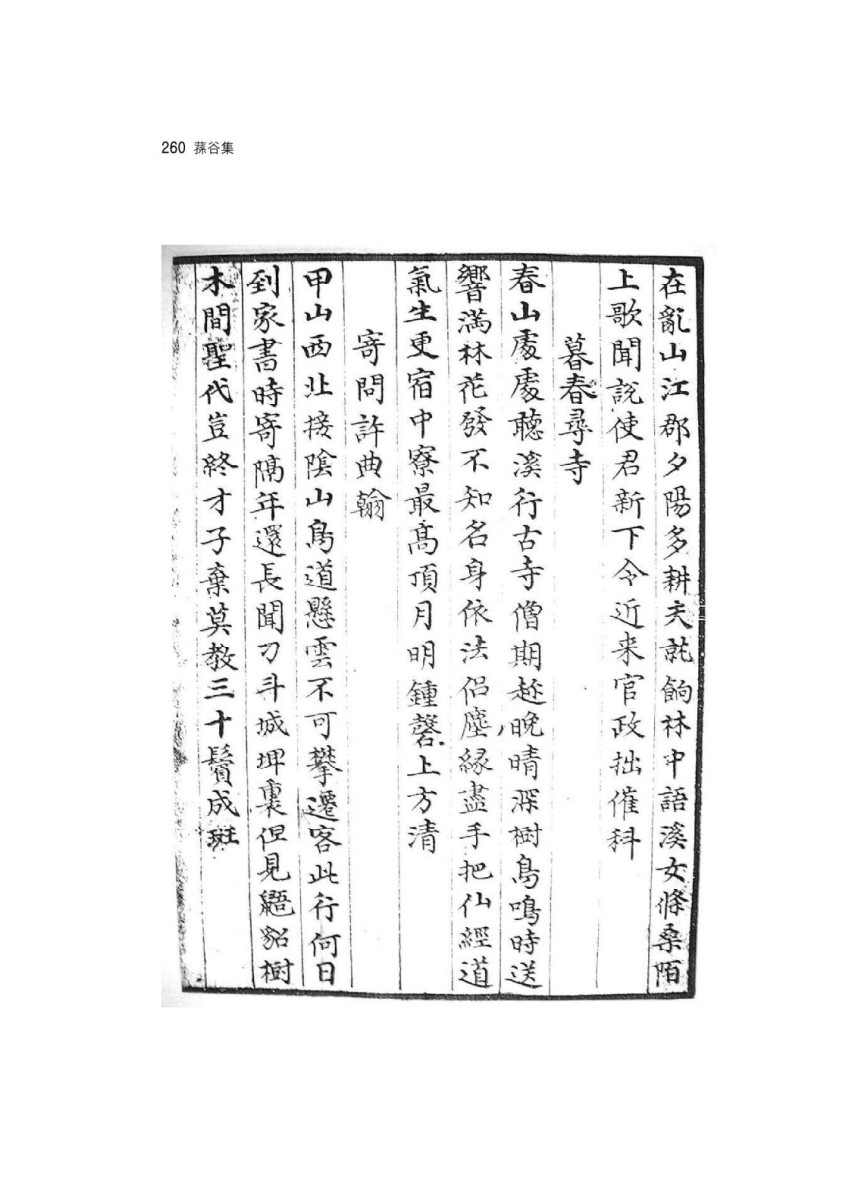 260 蓀谷集
在亂山江郡夕陽多耕夫就餉林中語溪女條桑陌
上歌聞說使君新下令近来官政拙催科
暮春尋寺
春山處處聽溪行古寺僧期趁晩晴深樹鳥鳴時送
響滿林花發不知名身依法侶塵緣盡手把仙經道
氣生更宿中寮最高頂月明鍾磬上方清
寄問許典翰
甲山西北接陰山鳥道懸雲不可攀遷客此行何日
到家書時寄隔年還長聞刀斗城坤裏但見貂樹
木間聖代豈終才子棄莫教三十鬢成斑